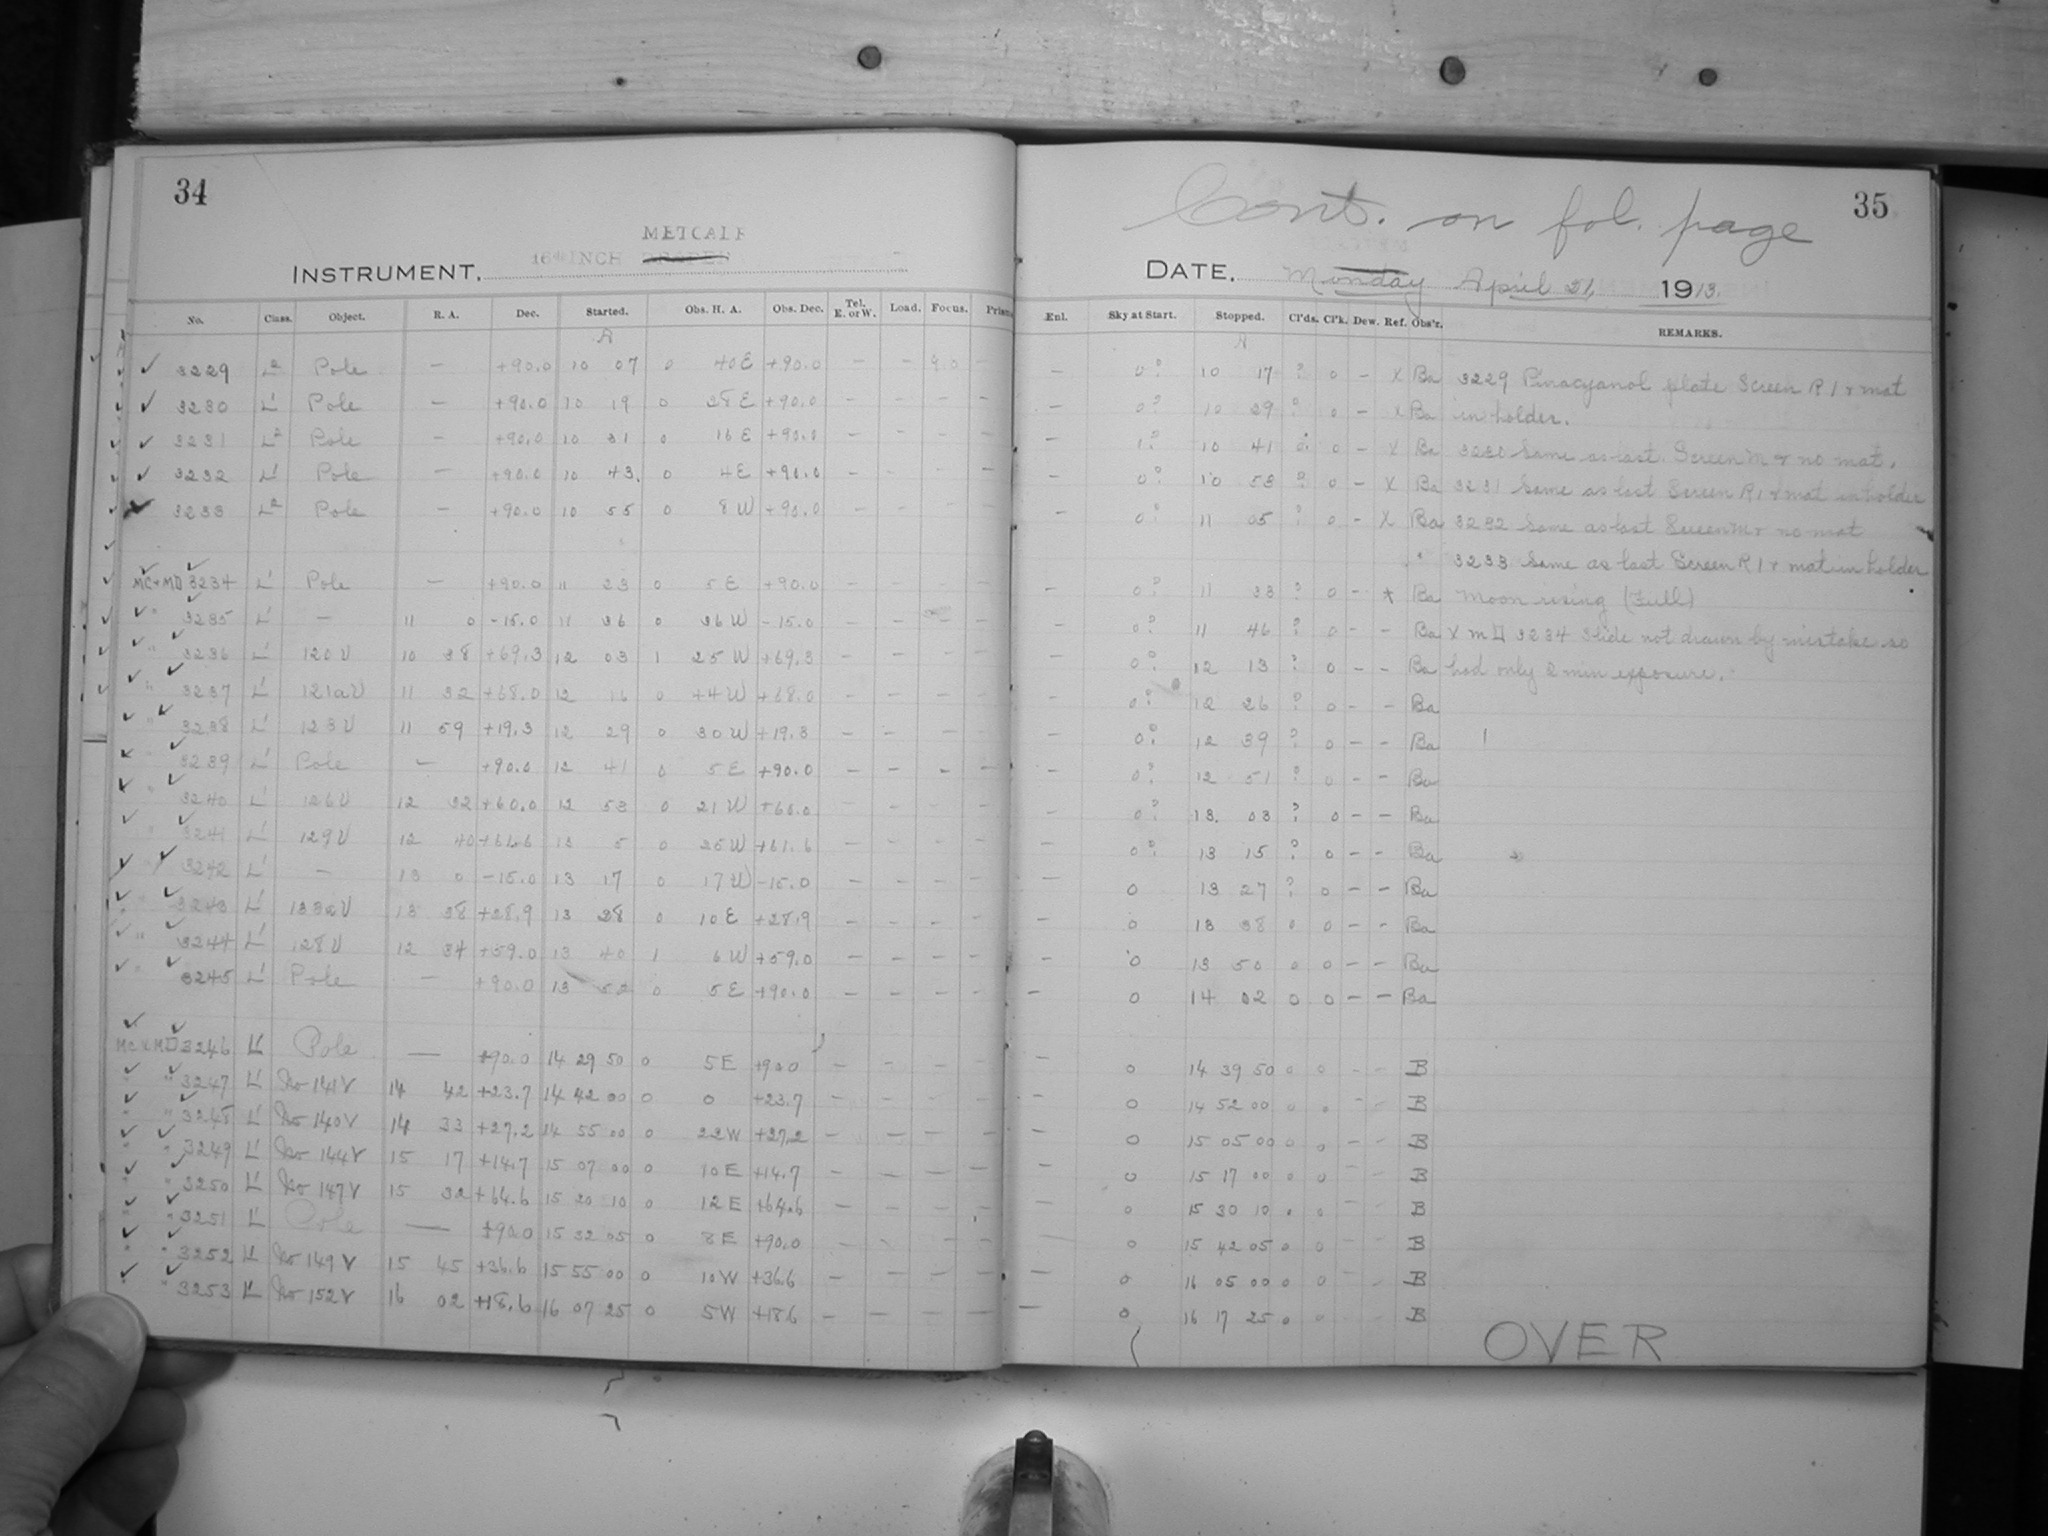 34
METCALF
16 INCH DRAPER
INSTRUMENT,
No. Class. Object. R. A. Dec. Started. Obs. H. A. Obs. Dec. Tel. E. or W. Load. Focus. Prism
A
3229 L2 Pole — +90.0 10 07 0 40 E +90.0 — — 9.0 —
3230 L' Pole — +90.0 10 19 0 28 E +90.0 — — — —
3231 L2 Pole — +90.0 10 31 0 16 E +90.0 — — — —
3232 L' Pole — +90.0 10 43. 0 4 E +90.0 — — — —
3233 L2 Pole — +90.0 10 55 0 8 W +90.0 — — — —
MC+MD 3234 L' Pole — +90.0 11 23 0 5 E +90.0 — — — —
" 3235 L' — 11 0 -15.0 11 36 0 36 W -15.0 — — —
" 3236 L' 120 V 10 38 +69.3 12 03 1 25 W +69.3 — — — —
" 3237 L' 121a V 11 32 +68.0 12 16 0 44 W +68.0 — — — —
" 3238 L' 123 V 11 59 +19.3 12 29 0 30 W +19.3 — — — —
" 3239 L' Pole — +90.0 12 41 0 5 E +90.0 — — — —
" 3240 L' 126 V 12 32 +60.0 12 53 0 21 W +60.0 — — — —
" 3241 L' 129 V 12 40 +61.6 13 5 0 25 W +61.6 — — — —
" 3242 L' — 13 0 -15.0 13 17 0 17 W -15.0 — — — —
" 3243 L' 132a V 13 38 +28.9 13 28 0 10 E +28.9 — — — —
" 3244 L' 128 V 12 34 +59.0 13 40 1 6 W +59.0 — — — —
" 3245 L' Pole — +90.0 13 52 0 5 E +90.0 — — — —
MC+MD 3246 L' Pole — +90.0 14 29 50 0 5 E +90.0 — — — —
" " 3247 L' No 141 V 14 42 +23.7 14 42 00 0 0 +23.7 — — — —
" " 3248 L' No 140 V 14 33 +27.2 14 55 00 0 22 W +27.2 — — — —
" " 3249 L' No 144 V 15 17 +14.7 15 07 00 0 10 E +14.7 — — — —
" " 3250 L' No 147 V 15 32 +64.6 15 20 10 0 12 E +64.6 — — — —
" " 3251 L' Pole — +90.0 15 32 05 0 8 E +90.0 — — — —
" " 3252 L' No 149 V 15 45 +36.6 15 55 00 0 10 W +36.6 — — — —
" " 3253 L' No 152 V 16 02 +18.6 16 07 25 0 5 W +18.6 — — — —
35
Cont. on fol. page
DATE, Monday April 21, 1913.
Enl. Sky at Start. Stopped. Cl'ds. Cl'k. Dew. Ref. Obs'r. REMARKS.
— 0? 10 17 ? 0 — X Ba 3229 Pinacyanol plate Screen R 1 + mat
— 0? 10 29 ? 0 — X Ba in holder.
— 1? 10 41 0 — X Ba 3230 Same as last. Screen M + no mat.
— 0? 10 53 ? 0 — X Ba 3231 Same as last Screen R 1 + mat in holder
— 0? 11 05 ? 0 — X Ba 3232 Same as last Screen M + no mat
3233 Same as last Screen R 1 + mat in holder
— 0? 11 33 ? 0 — * Ba Moon rising (Full)
— 0? 11 46 ? 0 — — Ba X MD 3234 Slide not drawn by mistake so
— 0? 12 13 ? 0 — — Ba had only 2 min exposure.
0? 12 26 ? 0 — — Ba
— 0? 12 39 ? 0 — — Ba
— 0? 12 51 ? 0 — — Ba
— 0? 13. 03 ? 0 — — Ba
0? 13 15 ? 0 — — Ba
0 13 27 ? 0 — — Ba
— 0 13 38 0 0 — — Ba
— 0 13 50 0 0 — — Ba
— 0 14 02 0 0 — — Ba
— 0 14 39 50 0 0 — — B
— 0 14 52 00 0 0 — — B
— 0 15 05 00 0 0 — — B
— 0 15 17 00 0 0 — — B
— 0 15 30 10 0 0 — — B
— 0 15 42 05 0 0 — — B
— 0 16 05 00 0 0 — — B
— 0 16 17 25 0 0 — — B
OVER